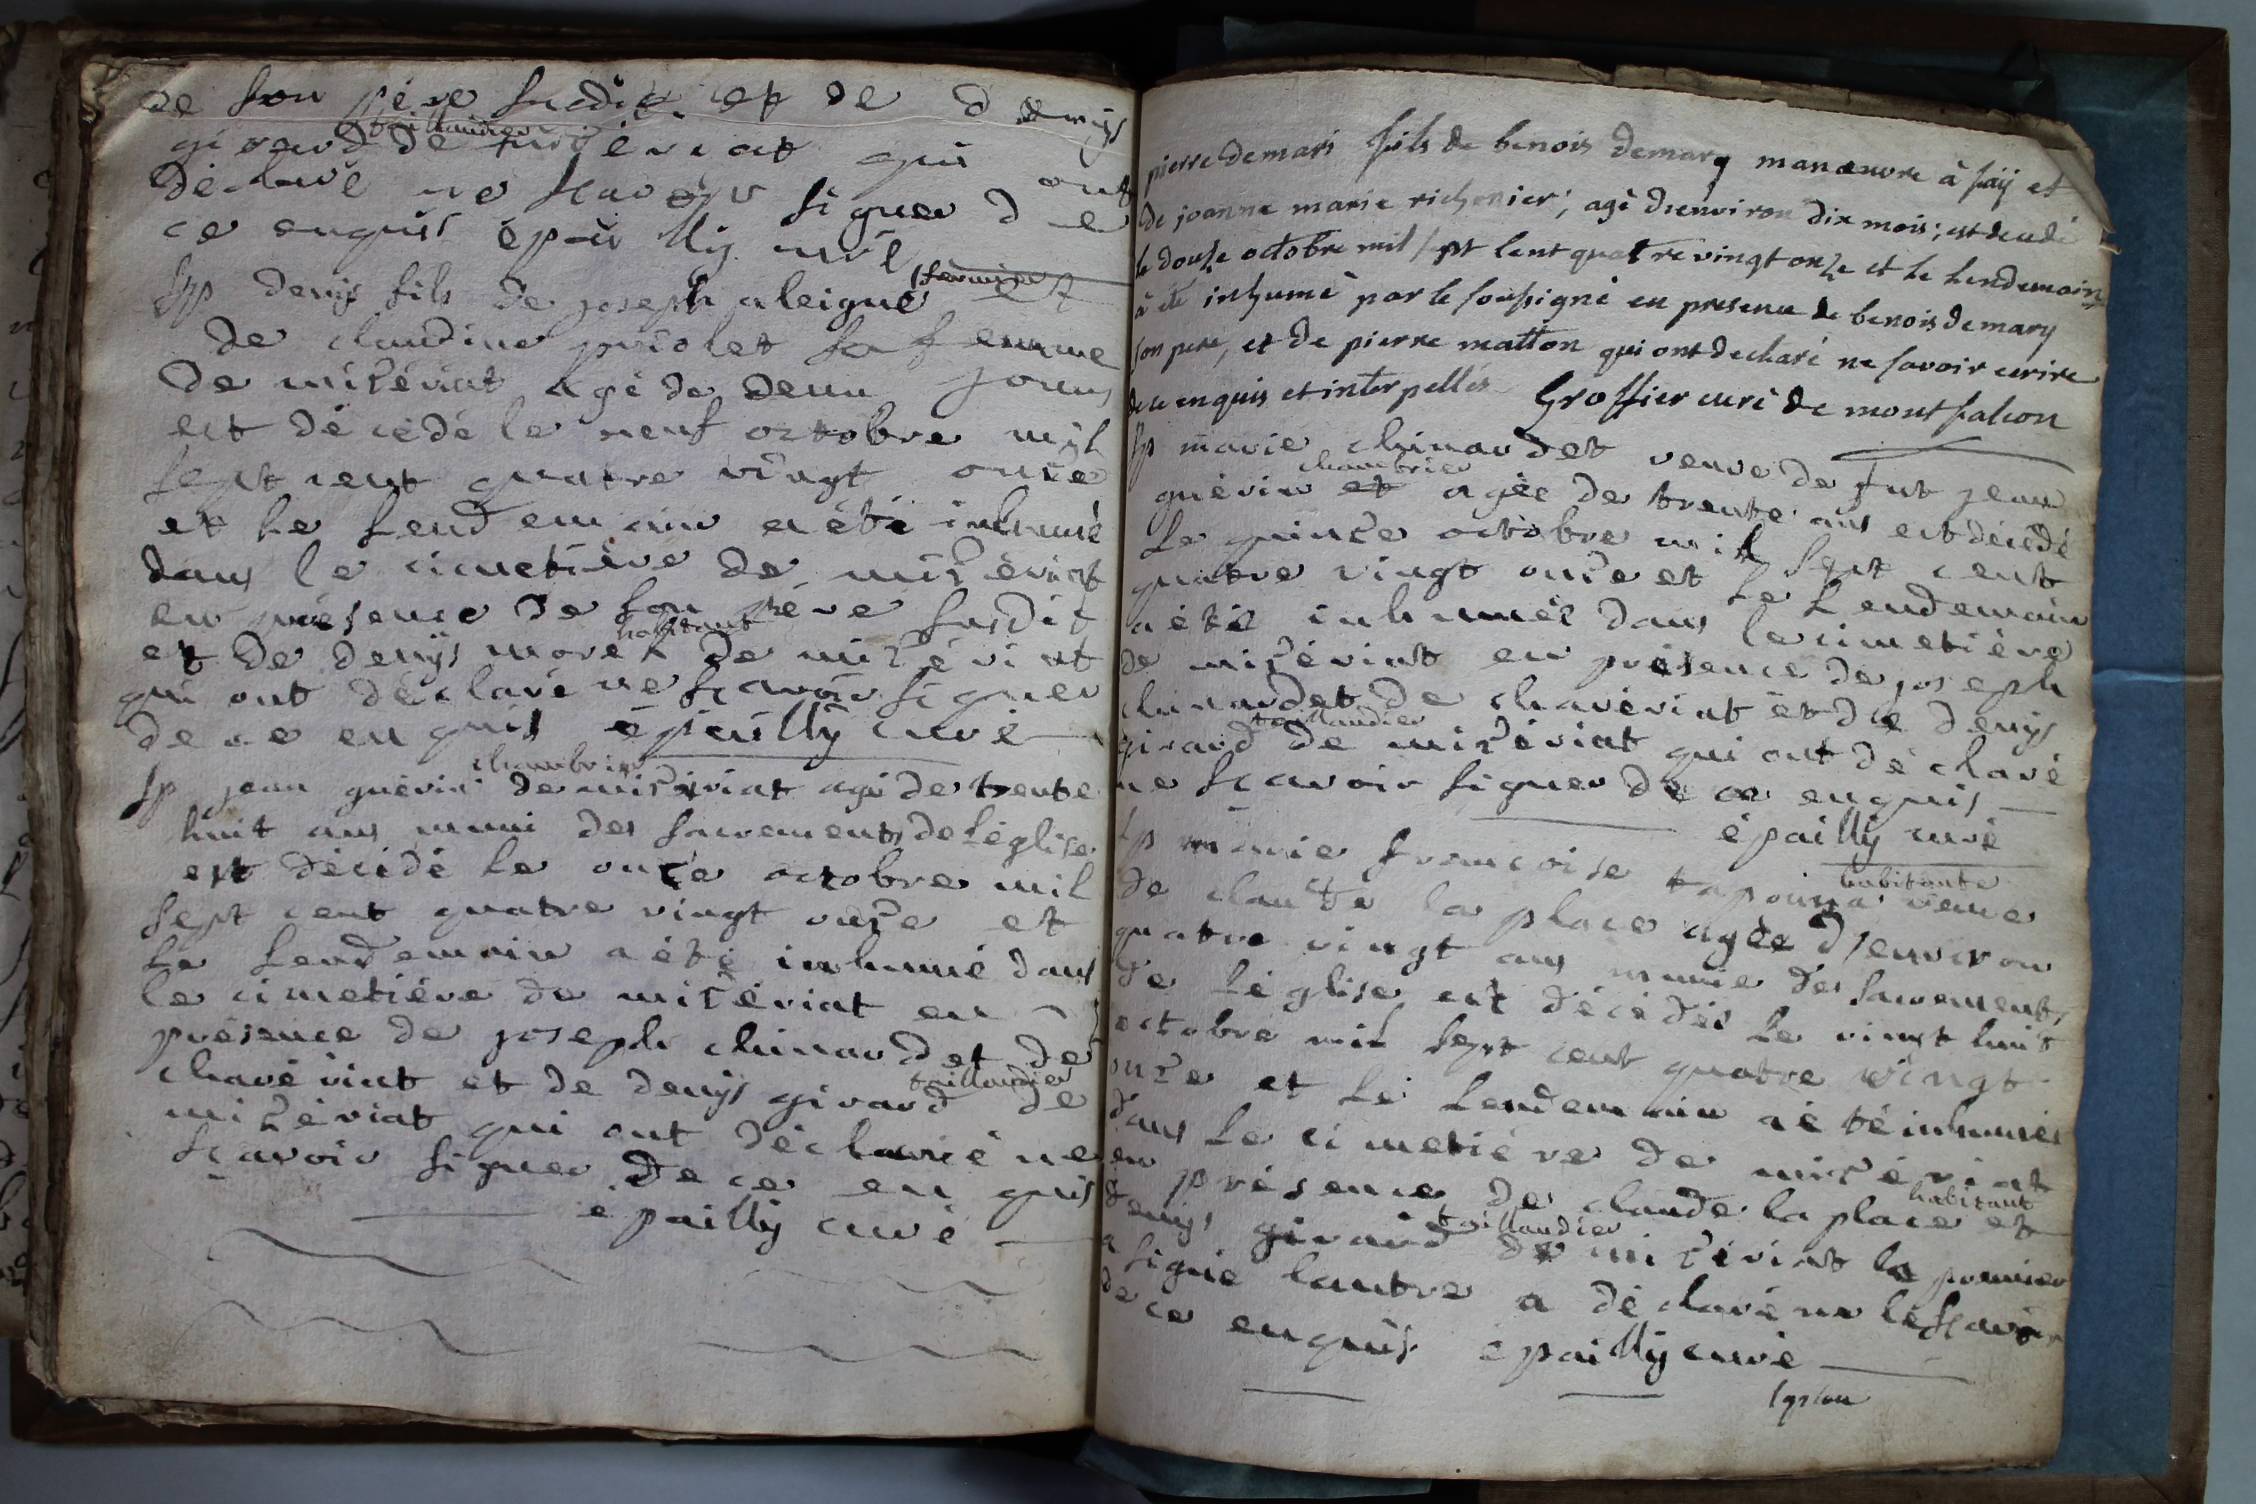 de son père susdit et de denys
taillandier
girard de misériat qui ont
déclaré ne scavoir signer de
ce enquis épailly curé
fermier
Sp denys fils de joseph aleigue et
de claudine priolet sa femme
de misériat agé de deux jours
est décédé le neuf octobre mil
sept cent quatre vingt onze
et le lendemain a été inhumé
dans le cimetière de misériat
en présence de son père susdit
habitant
et de denys morel de misériat
qui ont déclaré ne scavoir signer
de ce enquis épailly curé
chambrier
Sp jean guérin de misériat agé de trente
huit ans muni des sacrements de l'église
est décédé le onze octobre mil
sept cent quatre vingt onze et
le lendemain a été inhumé dans
le cimetière de misériat en
présence de joseph chinardet de
taillandier
chavériat et de denys girard de
misériat qui ont déclaré ne
scavoir signer de ce enquis
épailly curé
pierre demari fils de benois demary manœuvre à faÿ et
de joanne marie richonier; agé d'environ dix mois; est decedé
le douse octobre mil sept cent quatre vingt onze et le lendemain
à été inhumé par le soussigné en presence de benois demary
son pere, et de pierre matton qui ont declaré ne savoir ecrire
de ce enquis et interpellés Grossier curé de montfalcon
Sp marie chinardet veuve de fut jean
chambrier
guérin et agée de trente ans est décédé
le quinze octobre mil sept cent
quatre vingt onze et le lendemain
a été inhumée dans le cimetière
de misériat en présence de joseph
chinardet de chavériat et de denys
taillandier
girard de misériat qui ont déclaré
ne scavoir signer de ce enquis
épailly curé
habitante
Sp marie françoise taponna veuve
de claude la place agée d'environ
quatre vingt ans munie des sacrements
de l'église est décédée le vingt huit
octobre mil sept cent quatre vingt
onze et le lendemain a été inhumée
dans le cimetière de misériat
habitant
en présence de claude la place et
taillandier
denys girard de misériat le premier
a signé lautre a déclaré ne le scavoir
de ce enquis épailly curé